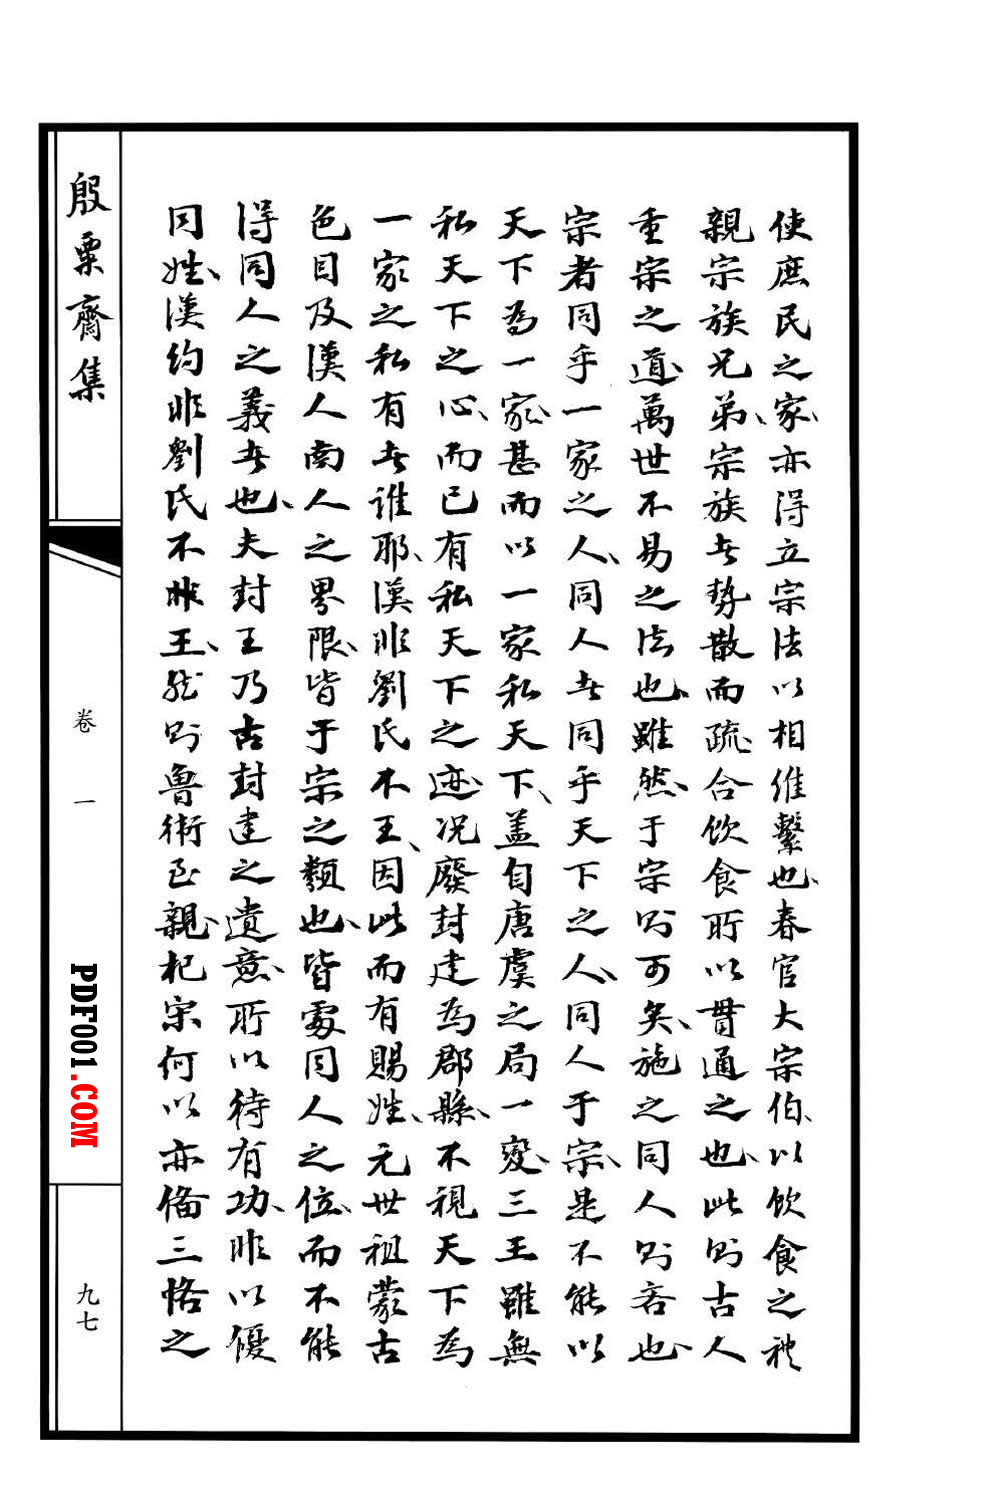 使庶民之家亦得立宗法以相維繫也春官大宗伯以飲食之禮
親宗族兄弟宗族者勢散而疏合飲食所以貫通之也此則古人
重宗之道萬世不易之法也雖然于宗則可矣施之同人則吝也
宗者同乎一家之人同人者同乎天下之人同人于宗是不能以
天下為一家甚而以一家私天下蓋自唐虞之局一變三王雖無
私天下之心而已有私天下之迹况廢封建為郡縣不視天下為
一家之私有者誰耶漢非劉氏不王因此而有賜姓元世祖蒙古
色目及漢人南人之界限皆于宗之類也皆處同人之位而不能
得同人之義者也夫封王乃古封建之遺意所以待有功非以優
同姓漢約非劉氏不王然則魯衛至親杞宋何以亦備三恪之
殷粟齋集
卷一
九七
PDF001.COM